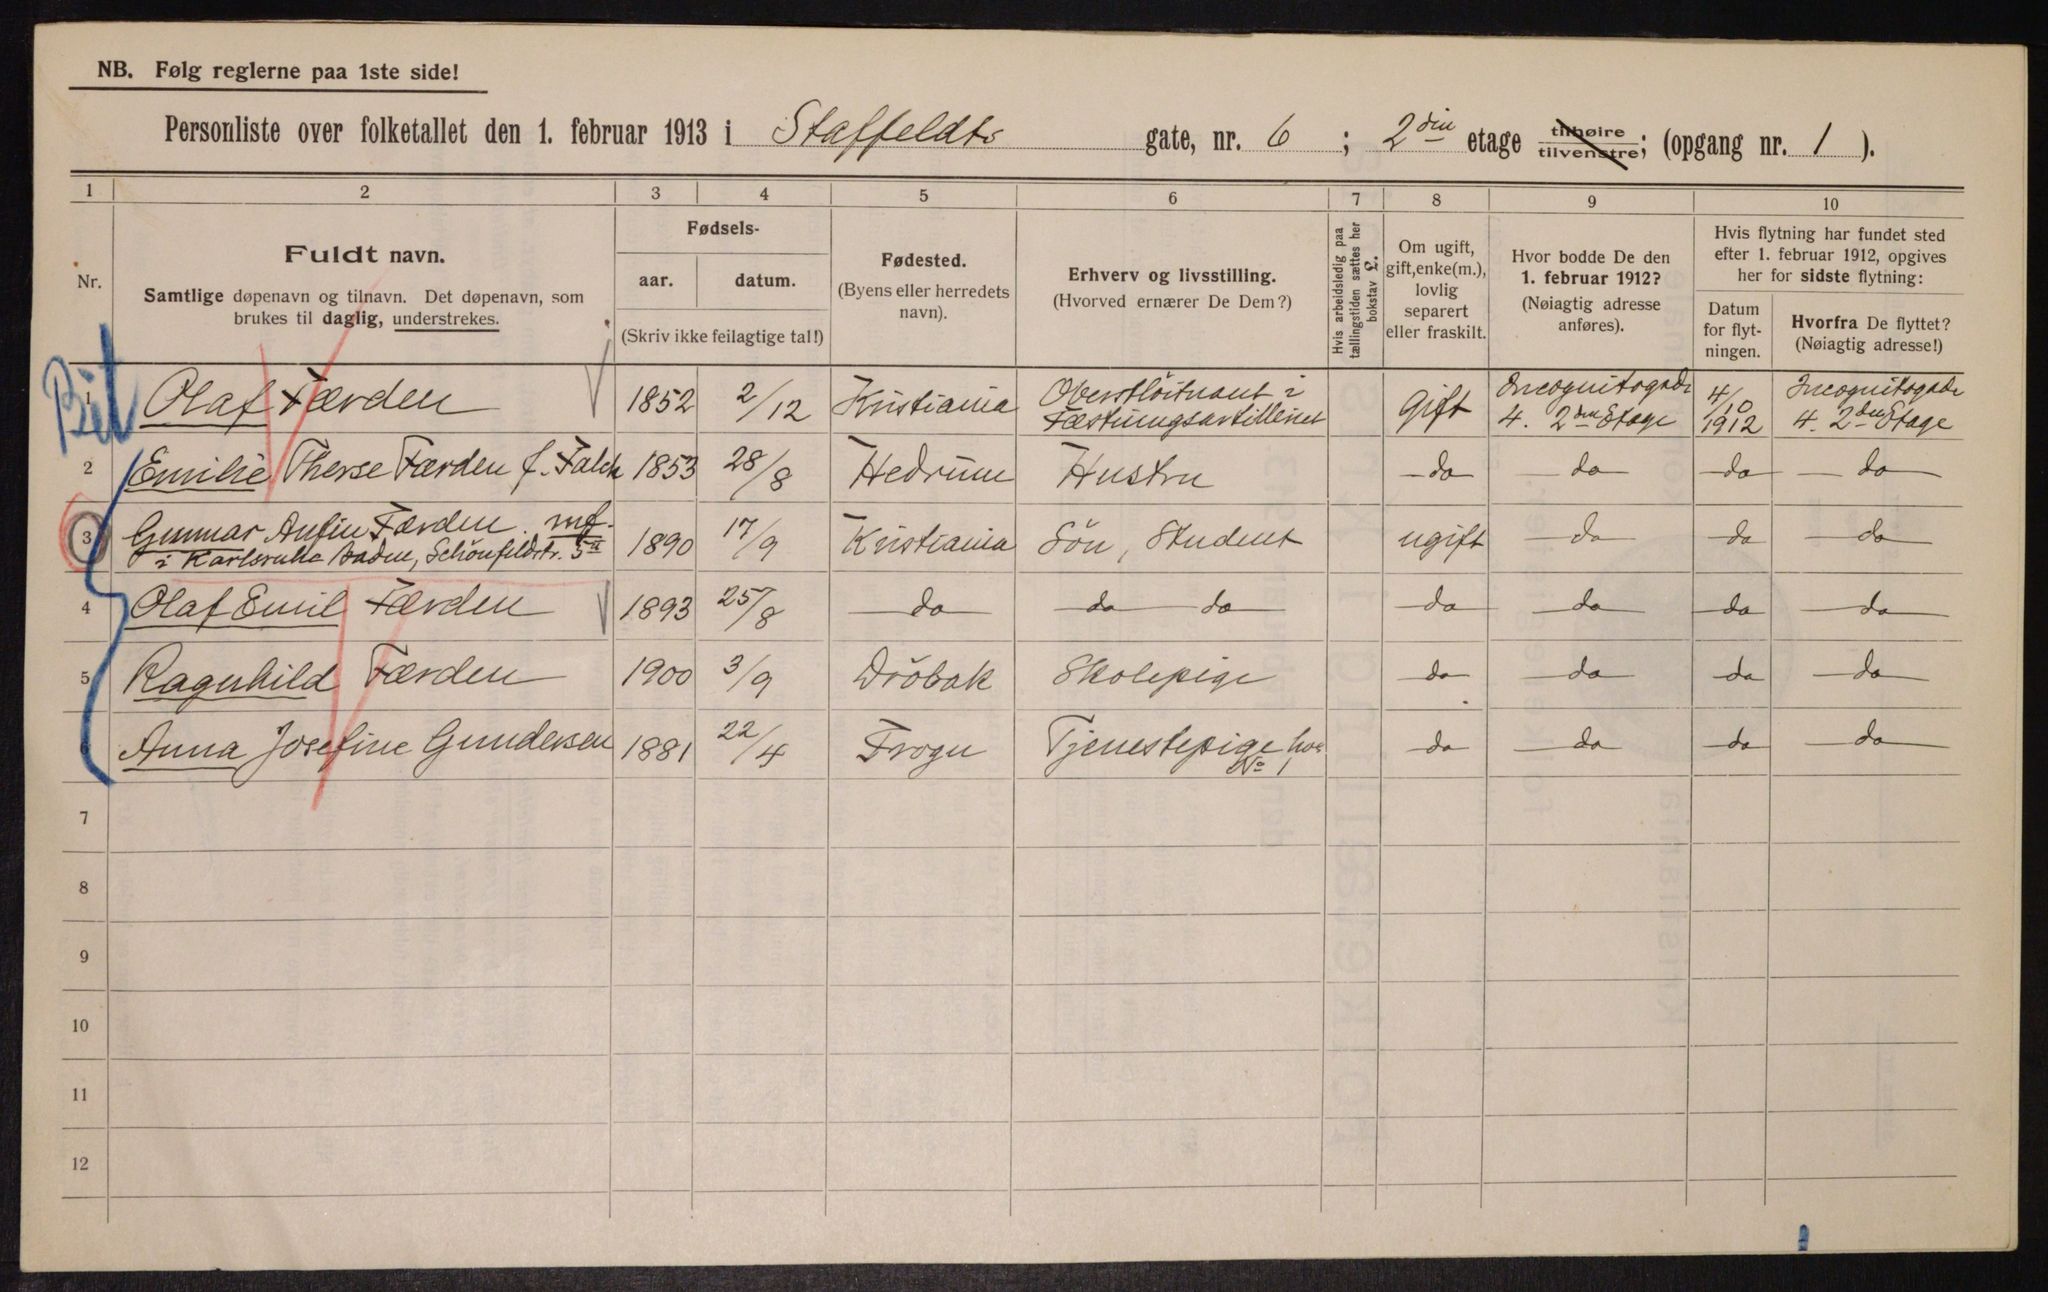 NB. Følg reglerne paa 1ste side!
Personliste over folketallet den 1. februar 1913 i Staffeldts gate, nr. 6 ; 2den etage tilhøire tilvenstre; (opgang nr. 1 ).
1 2 3 4 5 6 7 8 9 10
Nr.
Fuldt navn.
Samtlige døpenavn og tilnavn. Det døpenavn, som
brukes til daglig, understrekes.
Fødsels-
aar. datum.
(Skriv ikke feilagtige tal!)
Fødested.
(Byens eller herredets
navn).
Erhverv og livsstilling.
(Hvorved ernærer De Dem?)
Hvis arbeidsledig paa
tællingstiden sættes her
bokstav L.
Om ugift,
gift, enke(m.),
lovlig
separert
eller fraskilt.
Hvor bodde De den
1. februar 1912?
(Nøiagtig adresse
anføres).
Hvis flytning har fundet sted
efter 1. februar 1912, opgives
her for sidste flytning:
Datum
for flyt-
ningen.
Hvorfra De flyttet?
(Nøiagtig adresse!)
1 Olaf Færden 1852 2/12 Kristiania Oberstløitnant i Fæstningsartilleriet Gift Incognitogade 4. 2den Etage 4/10 1912 Incognitogade 4. 2den Etage
2 Emilie Therse Færden f. Falck 1853 28/8 Hedrum Hustru do do do do
3 Gunnar Anfin Færden mf.
i Karlsruhe Baden, Schönfeldstr. 5II 1890 17/9 Kristiania Sön, Student ugift do do do
4 Olaf Emil Færden 1893 25/8 do do do do do do do
5 Ragnhild Færden 1900 3/9 Dröbak Skolepige do do do do
6 Anna Josefine Gundersen 1881 22/4 Frogn Tjenestepige hos No 1 do do do do
7
8
9
10
11
12